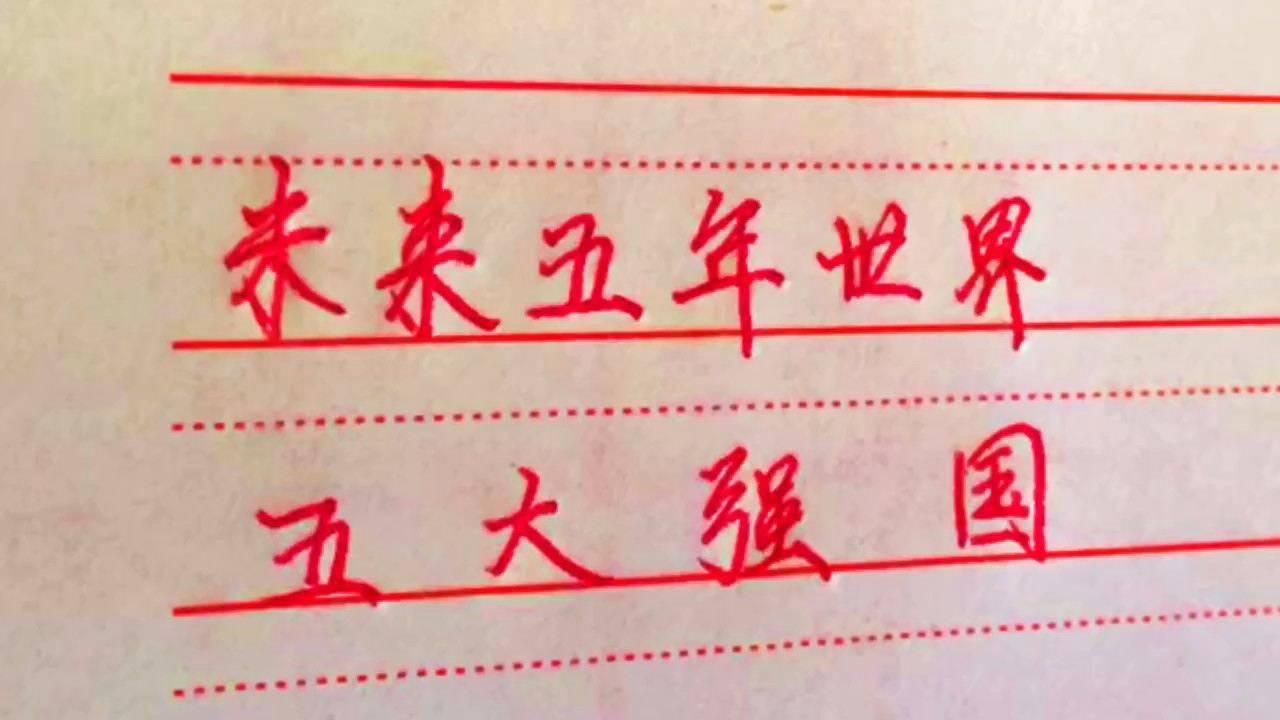 未来五年世界
五大强国